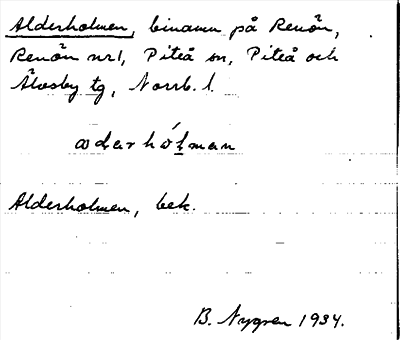 Alderholmen, binamn på Renön,
Renön nr 1, Piteå sn, Piteå och
Älvsby tg, Norrb. l.
aderhólman
Alderholmen, bek.
B. Nygren 1934.